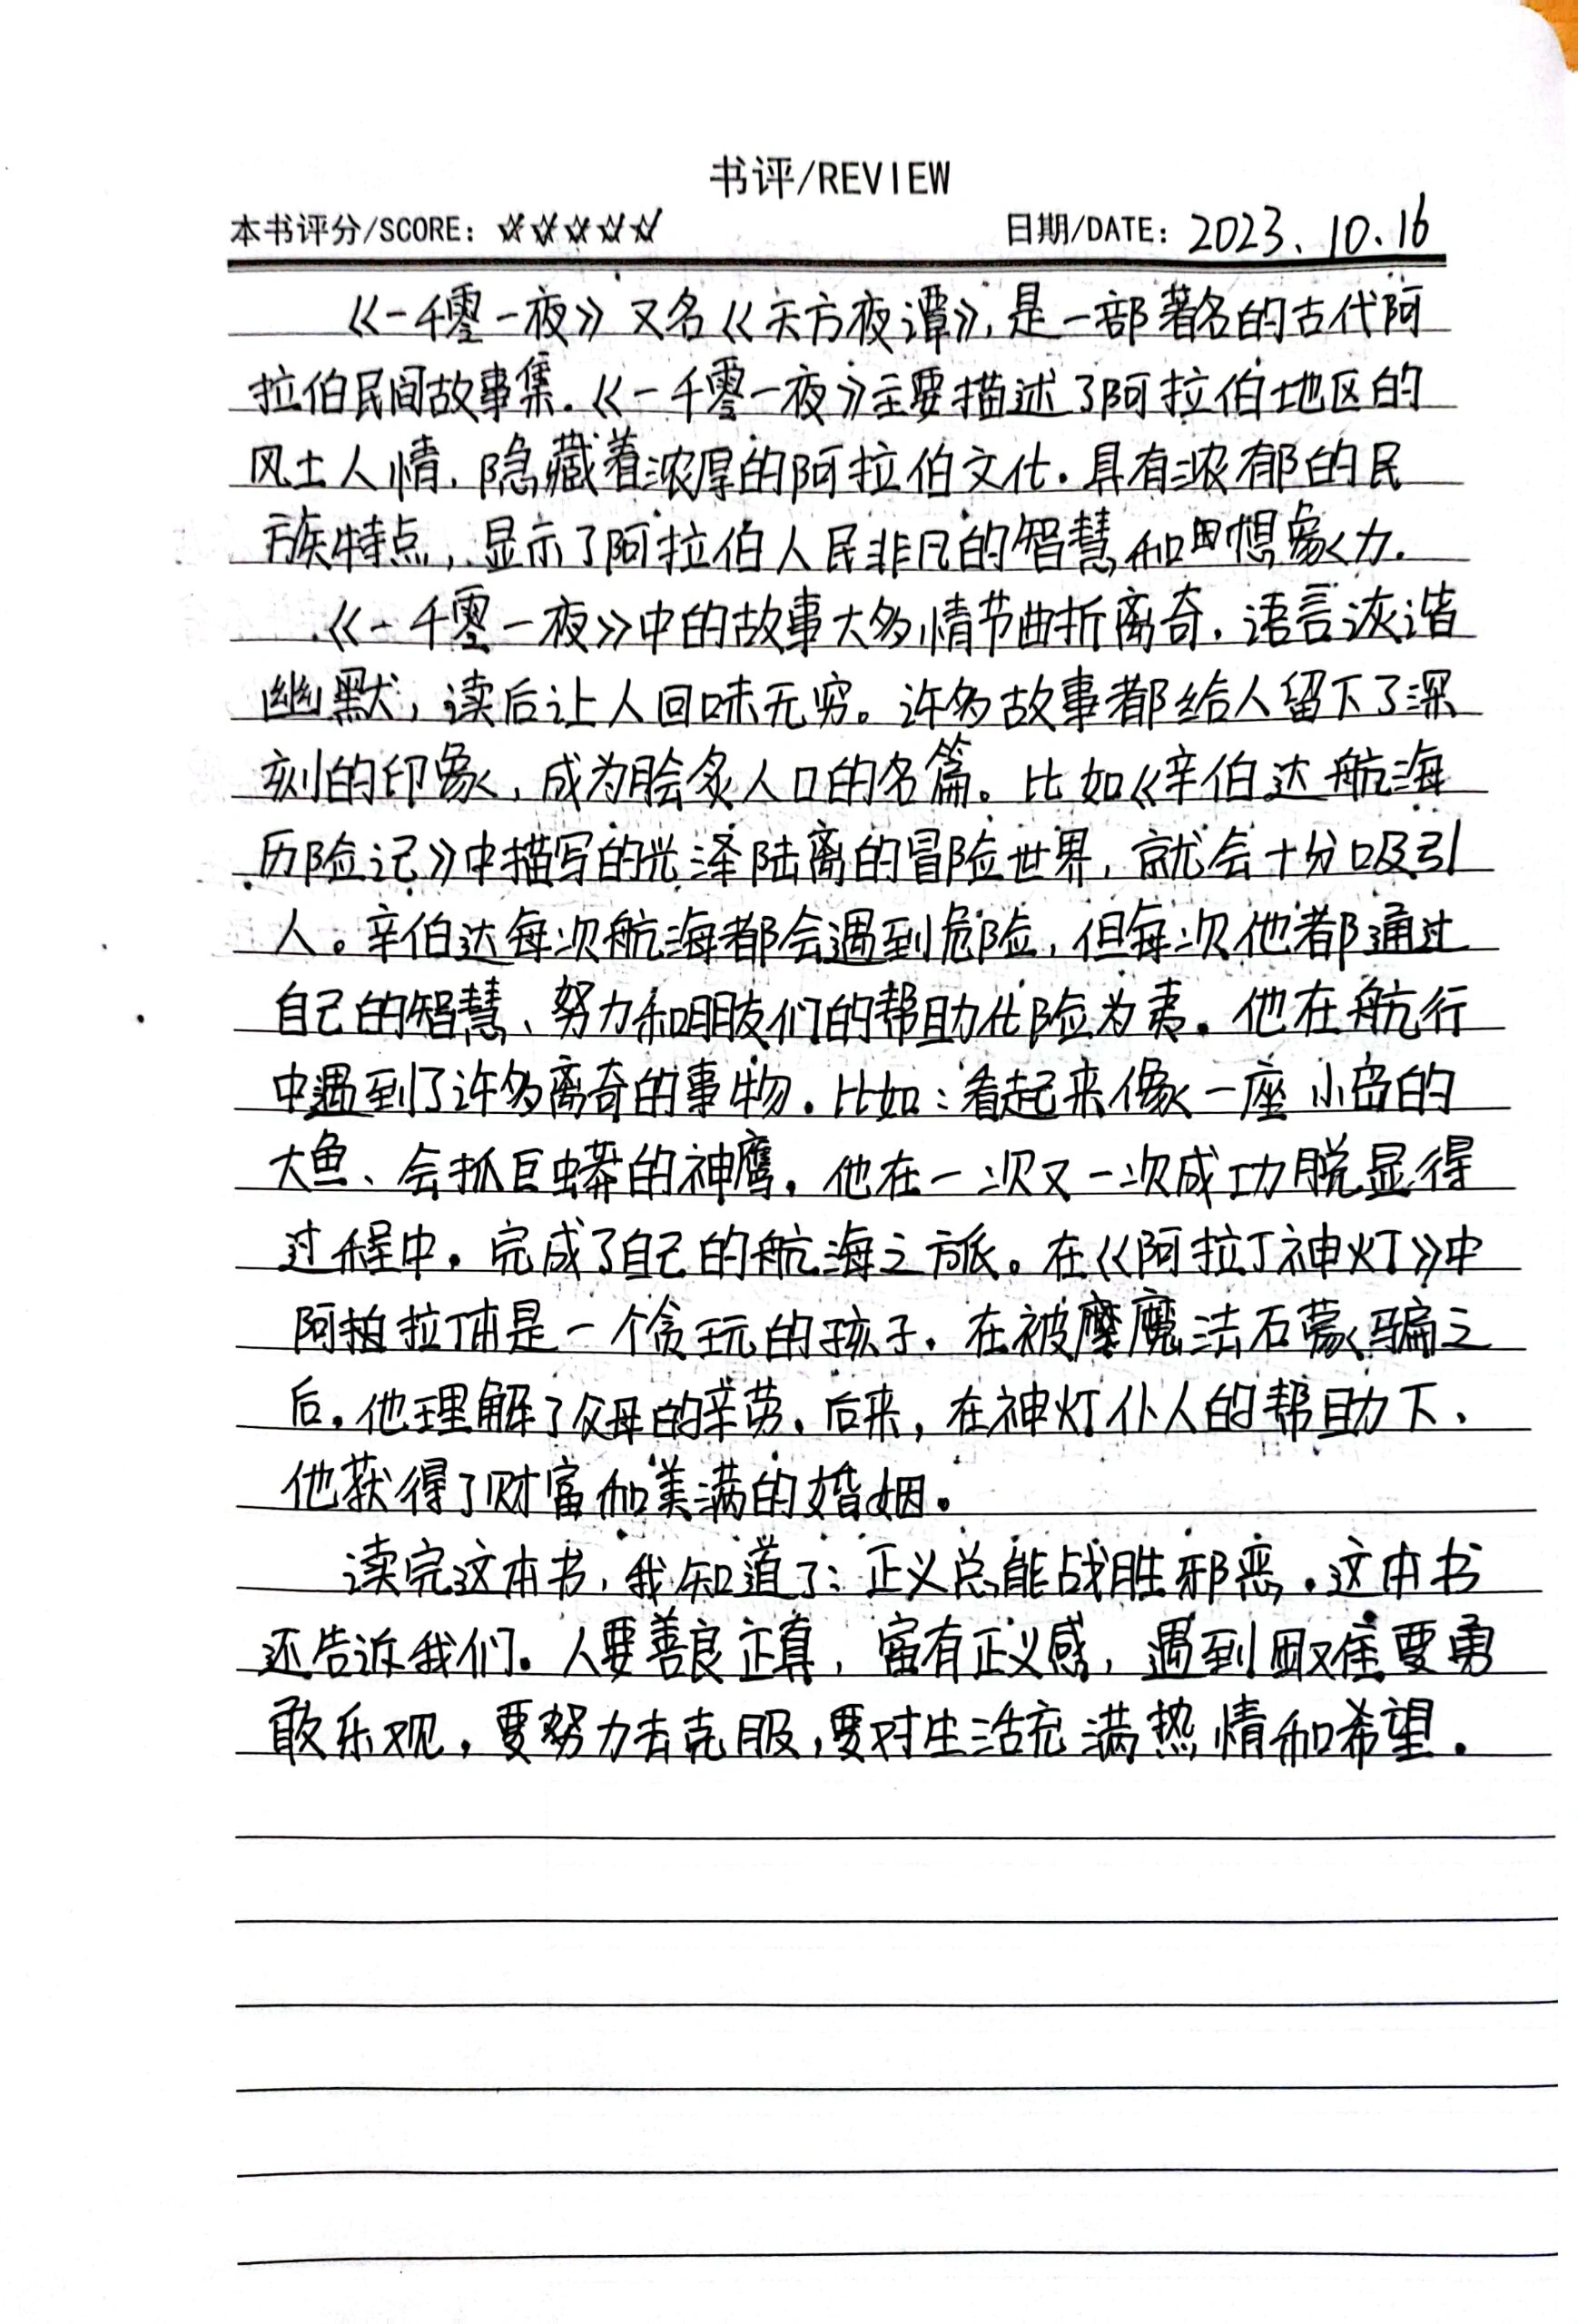 书评/REVIEW
本书评分/SCORE: ☆☆☆☆☆ 日期/DATE: 2023.10.16
《一千零一夜》又名《天方夜谭》,是一部著名的古代阿
拉伯民间故事集.《一千零一夜》主要描述了阿拉伯地区的
风土人情,隐藏着浓厚的阿拉伯文化.具有浓郁的民
族特点,显示了阿拉伯人民非凡的智慧和想象力.
《一千零一夜》中的故事大多情节曲折离奇,语言诙谐
幽默,读后让人回味无穷。许多故事都给人留下了深
刻的印象,成为脍炙人口的名篇。比如《辛伯达航海
历险记》中描写的光泽陆离的冒险世界,就会十分吸引
人。辛伯达每次航海都会遇到危险,但每次他都通过
自己的智慧、努力和朋友们的帮助化险为夷.他在航行
中遇到了许多离奇的事物.比如:看起来像一座小岛的
大鱼、会抓巨蟒的神鹰.他在一次又一次成功脱显得
过程中.完成了自己的航海之旅。在《阿拉丁神灯》中
阿拉丁本是一个贪玩的孩子.在被魔法石蒙骗之
后.他理解了父母的辛劳.后来,在神灯仆人的帮助下、
他获得了财富和美满的婚姻。
读完这本书,我知道了:正义总能战胜邪恶.这本书
还告诉我们。人要善良正真,富有正义感,遇到困难要勇
敢乐观,要努力去克服,要对生活充满热情和希望.